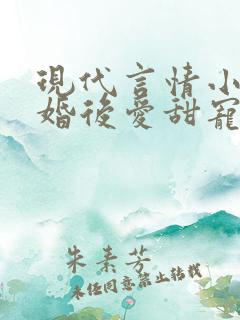 現代言情小
婚後愛甜寵
朱素芳
未經同意禁止轉載